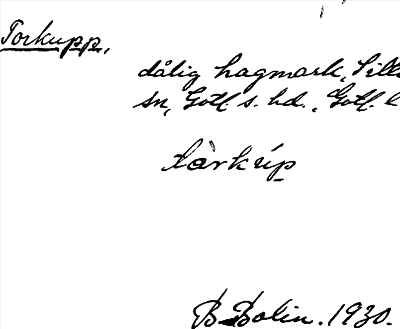 Torkupp,
dålig hagmark, Sille
sn, Gotl. s. hd., Gotl. l
tàrkúp
B Bolin. 1930.